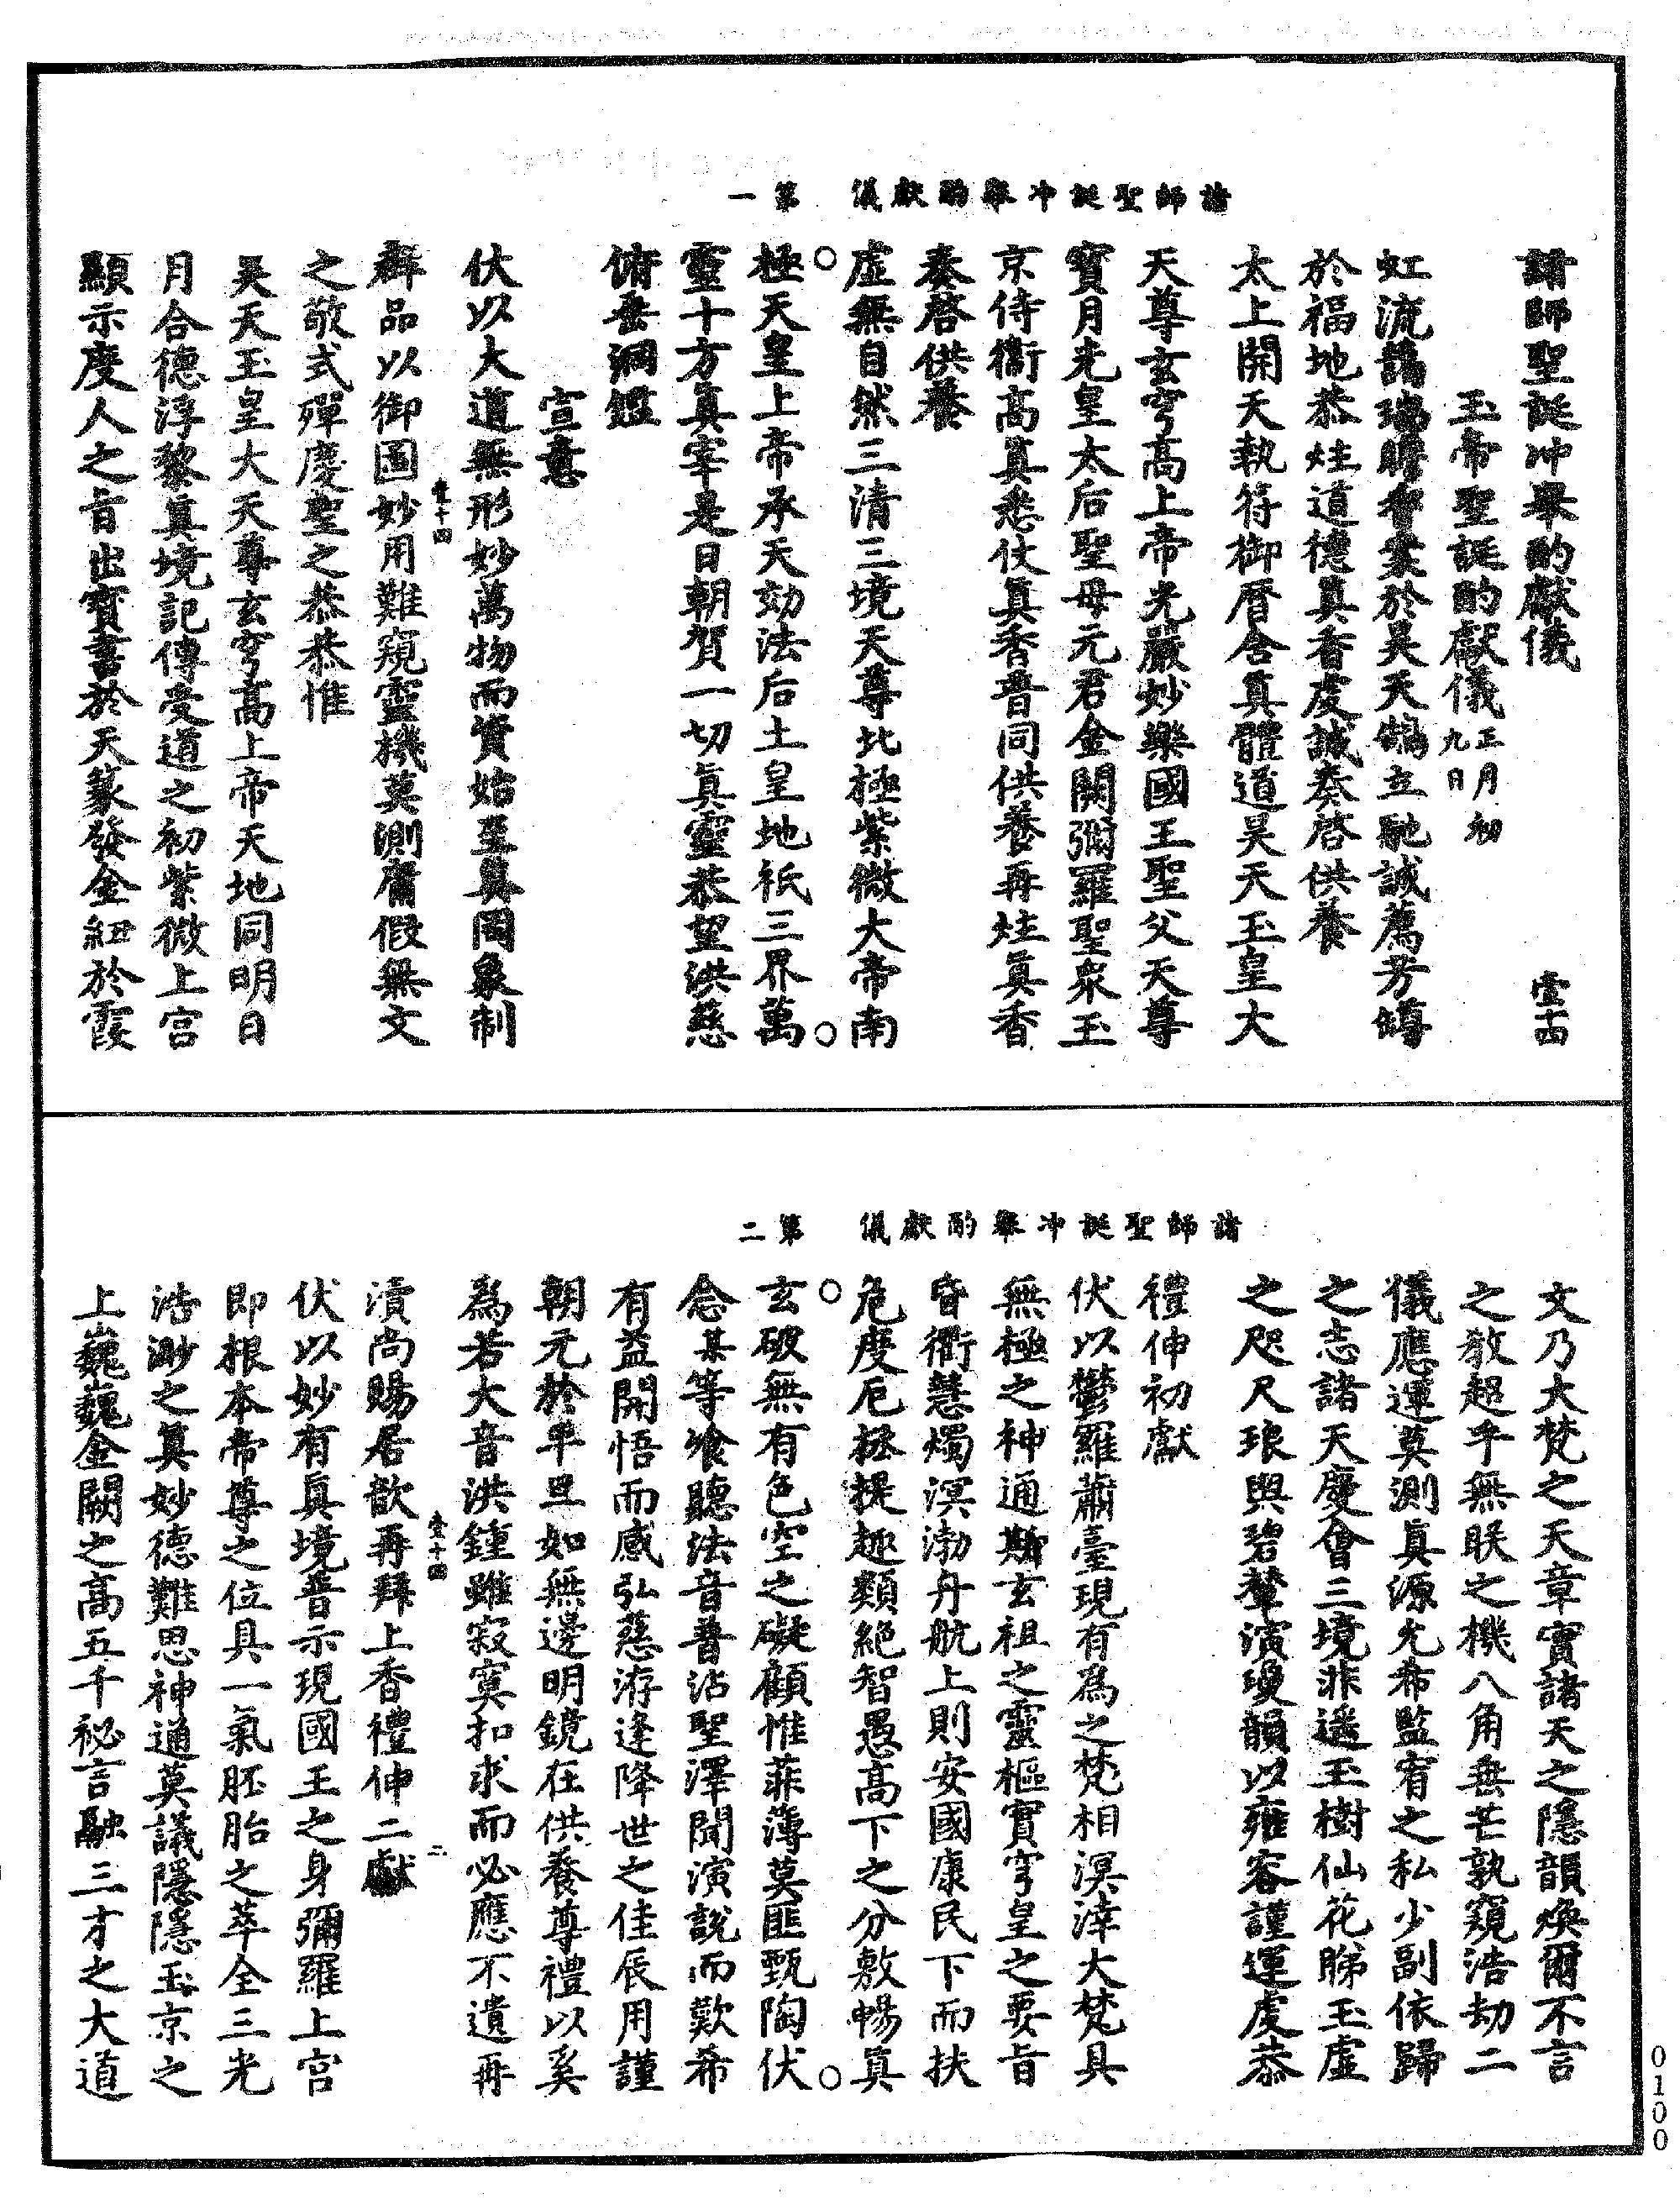 諸師聖誕冲舉酌獻儀　第一
諸師聖誕冲舉酌獻儀　壹十四
玉帝聖誕酌獻儀正月初九日
虹流謁瑞瞻香案於昊天鵠立馳誠薦芳罇
於福地恭炷道德眞香虔誠奏啓供養
太上開天執符御曆含眞體道昊天玉皇大
天尊玄穹高上帝光嚴妙樂國王聖父天尊
寳月光皇太后聖母元君金闕彌羅聖衆玉
京侍衞高眞悉仗眞香普同供養再炷眞香
奏啓供養
虛無自然三清三境天尊北極紫微大帝南
極天皇上帝承天効法后土皇地祇三界萬
靈十方眞宰是日朝賀一切眞靈恭望洪慈
俯垂洞鑑
宣意
伏以大道無形妙萬物而資始至眞罔象制
羣品以御圖妙用難窺靈機莫測庸假無文
壹十四
之敬式殫慶聖之恭恭惟
昊天玉皇大天尊玄穹高上帝天地同明日
月合德浮黎眞境記傳受道之初紫微上宫
顯示度人之旨出寳書於天篆發金紐於霞
諸師聖誕冲舉酌獻儀　第二
文乃大梵之天章實諸天之隱韻煥爾不言
之敎超乎無朕之機八角垂芒孰窺浩劫二
儀應運莫測眞源允希監宥之私少副依歸
之志諸天慶會三境非遥玉樹仙花睇玉虛
之咫尺琅輿碧輦演瓊韻以雍容謹運虔恭
禮伸初獻
伏以鬱羅蕭臺現有爲之梵相溟涬大梵具
無極之神通斯玄祖之靈樞實穹皇之要旨
昏衢慧燭溟渤丹航上則安國康民下而扶
危度厄拯提趣類絶智愚高下之分敷暢眞
玄破無有色空之礙顧惟菲薄莫匪甄陶伏
念某等喰聽法音普沾聖澤聞演説而歎希
有益開悟而感弘慈洊逢降世之佳辰用謹
朝元於平旦如無邊明鏡在供養尊禮以奚
爲若大音洪鍾雖寂寞扣求而必應不遺再
瀆尚賜居歆再拜上香禮伸二獻
壹十四
二
伏以妙有眞境普示現國王之身彌羅上宫
即根本帝尊之位具一氣胚胎之萃全三光
浩渺之眞妙德難思神通莫議隱隱玉京之
上巍巍金闕之高五千祕言融三才之大道
0100